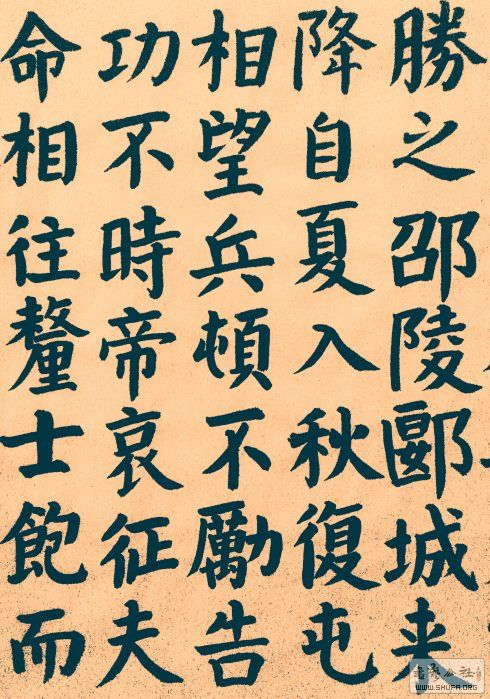 勝之邵陵郾城来
降自夏入秋復屯
相望兵頓不勵告
功不時帝哀征夫
命相往釐士飽而
WWW.SHUFA.ORG